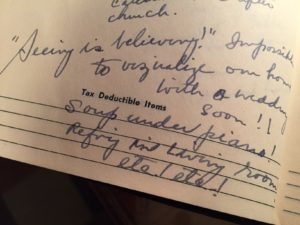 church.
"Seeing is believing!" Impossible
to vizualize our home
with a wedding
soon!!
Tax Deductible Items
Soup under piano!
Refrig in Living room
etc! etc!